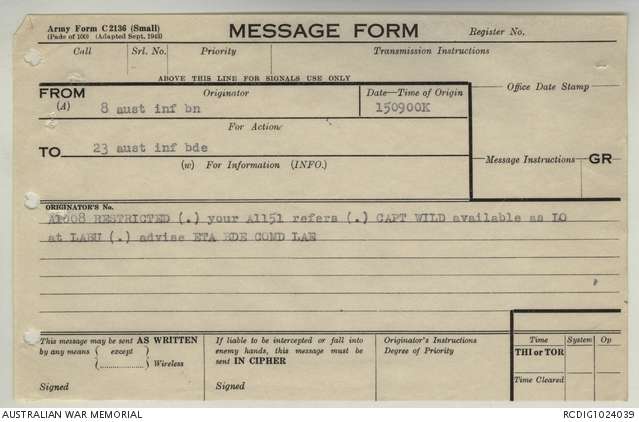 Army Form C2136 (Small)
(Pads of 100) (Adapted Sept. 1943)
MESSAGE FORM
Register No.
Call
Srl. No.
Priority
Transmission Instructions
ABOVE THIS LINE FOR SIGNALS USE ONLY
FROM
(A)
Originator
Date—Time of Origin
Office Date Stamp
8 aust inf bn
150900K
For Action
TO
23 aust inf bde
(w) For Information (INFO.)
Message Instructions
GR
ORIGINATOR'S No.
A1008 RESTRICTED (.) your A1151 refers (.) CAPT WILD available as LO
at LABU (.) advise ETA BDE COMD LAE
This message may be sent AS WRITTEN
by any means { except }
{ .................... } Wireless
Signed
If liable to be intercepted or fall into
enemy hands, this message must be
sent IN CIPHER
Signed
Originator's Instructions
Degree of Priority
Time
System
Op
THI or TOR
Time Cleared
AUSTRALIAN WAR MEMORIAL
RCDIG1024039